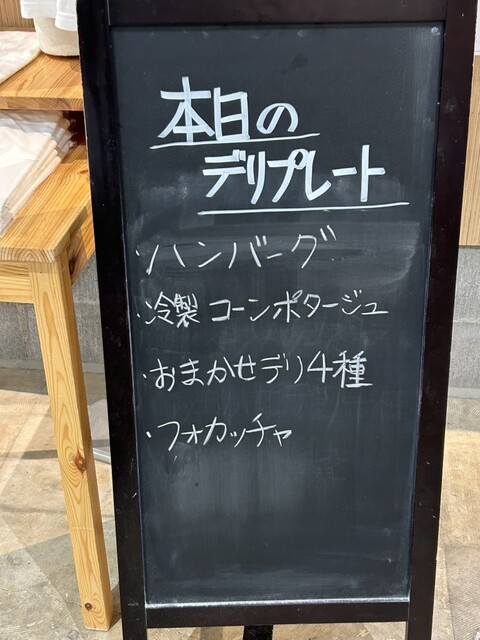 本日の
デリプレート
・ハンバーグ
・冷製 コーンポタージュ
・おまかせデリ4種
・フォカッチャ